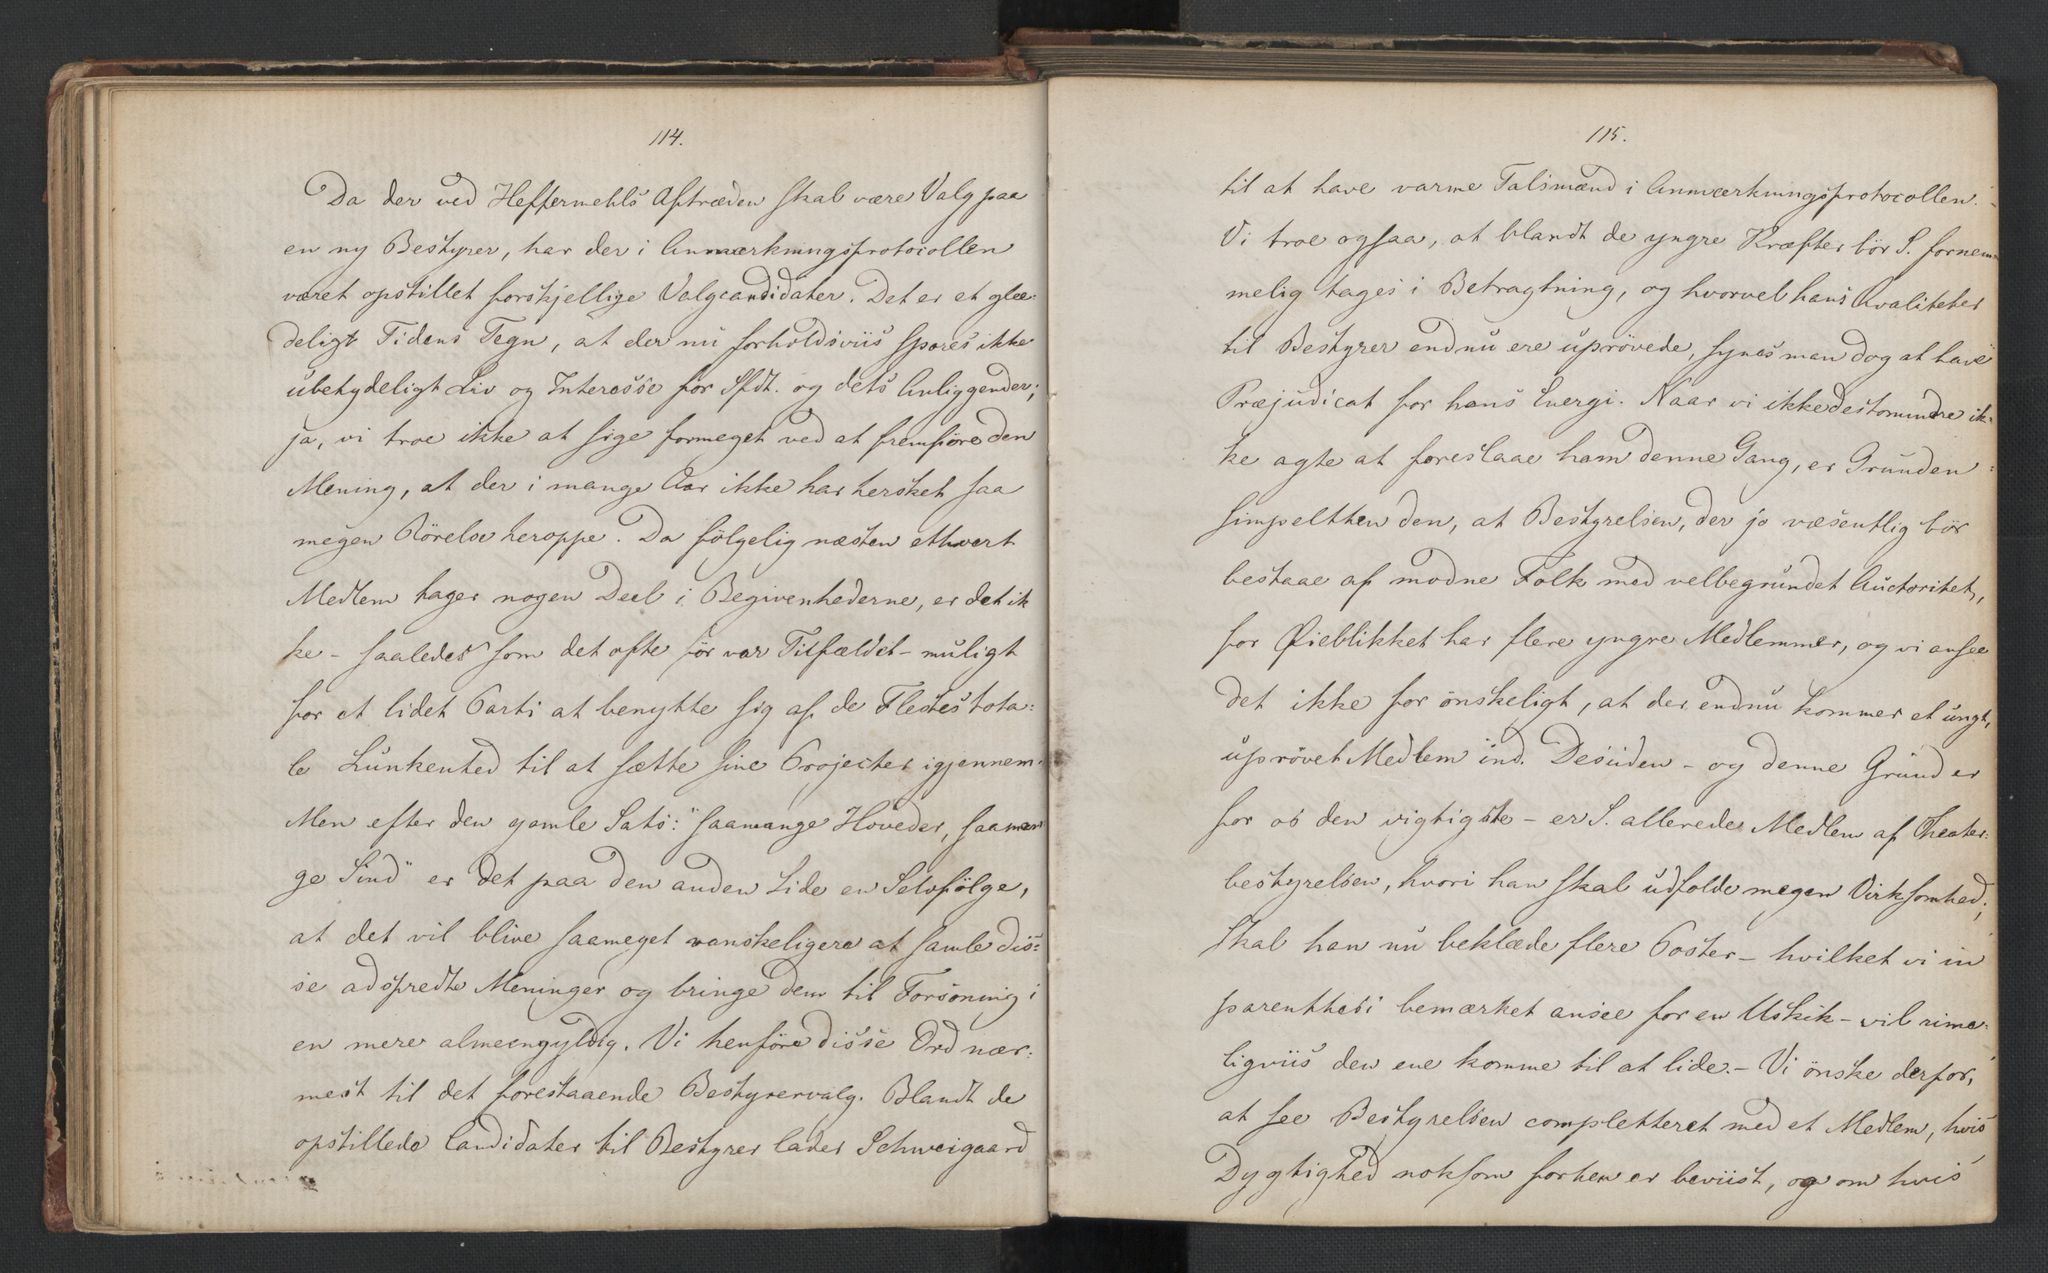 114.
Da der ved Heffermehls Aftræden skal være Valg paa
en ny Bestyrer, har der i Anmærkningsprotocollen
været opstillet forskjellige Valgcandidater. Det er et glæ-
deligt Tidens Tegn, at der nu forholdsviis spores ikke
ubetydeligt Liv og Interesse for Sfdt. og dets Anliggender;
ja, vi troe ikke at sige formeget ved at fremføre den
Mening, at der i mange Aar ikke har hersket saa
megen Rörelse heroppe. Da fölgelig næsten ethvert
Medlem tager nogen Deel i Begivenhederne, er det ik
ke - saaledes som det ofte för var Tilfældet - muligt
for et lidet Parti at benytte sig af de Flestes tota=
le Lunkenhed til at sætte sine Projecter igjennem.
Men efter den gamle Sats: "saamange Hoveder, saaman
ge Sind" er det paa den anden Side en Selvfölge,
at det vil blive saameget vanskeligere at samle dis=
se adspredte Meninger og bringe dem til Forsoning i
en mere almeengyldig. Vi henföre disse Ord nær=
mest til det forestaaende Bestyrervalg. Blandt de
opstillede Candidater til Bestyrer lader Schweigaard
115.
til at have varme Talsmænd i Anmærkningsprotocollen.
Vi troe ogsaa, at blandt de yngre Kræfter bör S. fornem=
melig tages i Betragtning, og hvorvel hans Qvaliteter
til Bestyrer endnu ere uprövede, synes man dog at have
Præjudicat for hans Energi. Naar vi ikkedestomindre ik=
ke agte at foreslaae ham denne Gang, er Grunden
simpelthen den, at Bestyrelsen, der jo væsentlig bör
bestaae af modne Folk med velbegrundet Auctoritet,
for Øieblikket har flere yngre Medlemmer, og vi ansee
det ikke for önskeligt, at der endnu kommer et ungt,
uprövet Medlem ind. Desuden - og denne Grund er
for os den vigtigste - er S. allerede Medlem af Theater=
bestyrelsen, hvori han skal udfolde megen Virksomhed;
skal han nu beklæde flere Poster - hvilket vi in
parenthesi bemærket ansee for en Uskik - vil rime=
ligviis den ene komme til at lide. - Vi önske derfor,
at see Bestyrelsen completteret med et Medlem, hvis
Dygtighed noksom forhen er beviist, og om hvis